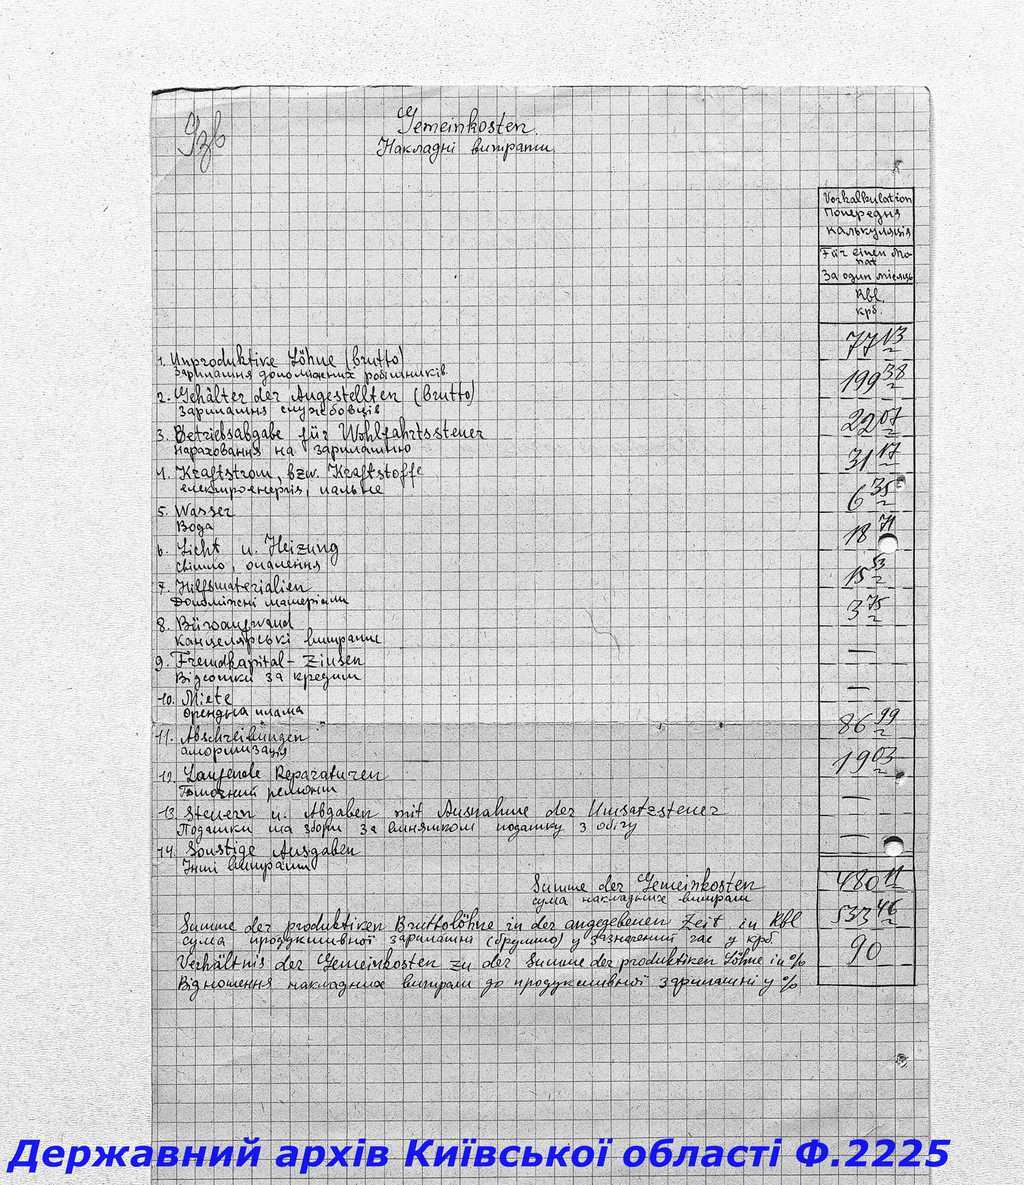 Gemeinkosten.
Накладні витрати
Vorkalkulation
Попередня
калькуляція
Für einen Mo-
nat
За один місяць
Rbl.
крб.
1. Unproduktive Löhne (brutto) 77 13
Зарплатня допоміжних робітників
2. Gehälter der Angestellten (brutto) 199 38
Зарплатня службовців
3. Betriebsabgabe für Wohlfahrtssteuer 22 07
нараховання на зарплатню
4. Kraftstrom, bzw. Kraftstoffe 31 17
електроенергія, пальне
5. Wasser 6 35
Вода
6. Licht u. Heizung 18 71
світло, опалення
7. Hilfsmaterialien 15 53
Допоміжні матеріали
8. Büroaufwand 3 75
канцелярські витрати
9. Fremdkapital-Zinsen —
Відсотки за кредит
10. Miete —
орендна плата
11. Abschreibungen 86 99
амортизація
12. Laufende Reparaturen 19 03
Поточний ремонт
13. Steuern u. Abgaben mit Ausnahme der Umsatzsteuer —
Податки та збори за винятком податку з обігу
14. Sonstige Ausgaben —
Інші витрати
Summe der Gemeinkosten 480 11
сума накладних витрат
Summe der produktiven Bruttolöhne in der angegebenen Zeit in Rbl 533 46
сума продуктивної зарплатні (брутто) у зазначений час у крб.
Verhältnis der Gemeinkosten zu der Summe der produktiven Löhne in % 90
Відношення накладних витрат до продуктивної зарплатні у %
Державний архів Київської області Ф.2225